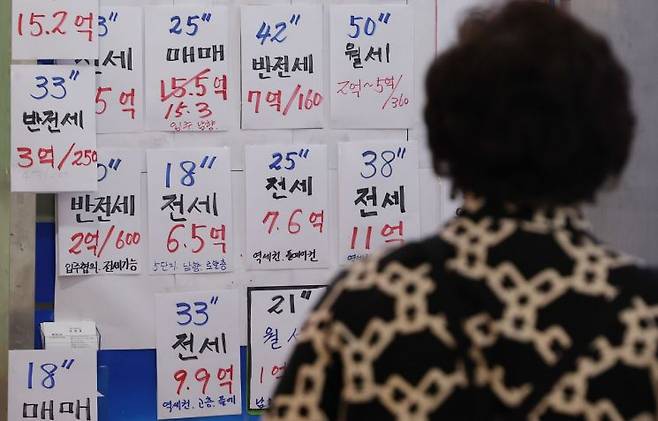 15.2억
3"
전세
5억
25"
매매
15.5억
15.3
입주 남향.
42"
반전세
7억/160
50"
월세
2억~5억
/360
33"
반전세
3억/250
0"
반전세
2억/600
입주협의. 전세가능
18"
전세
6.5억
5단지. 남향. 로얄층
25"
전세
7.6억
역세권. 올베이컨
38"
전세
11억
33"
전세
9.9억
역세권. 고층.
21"
월세
1억
18"
매매